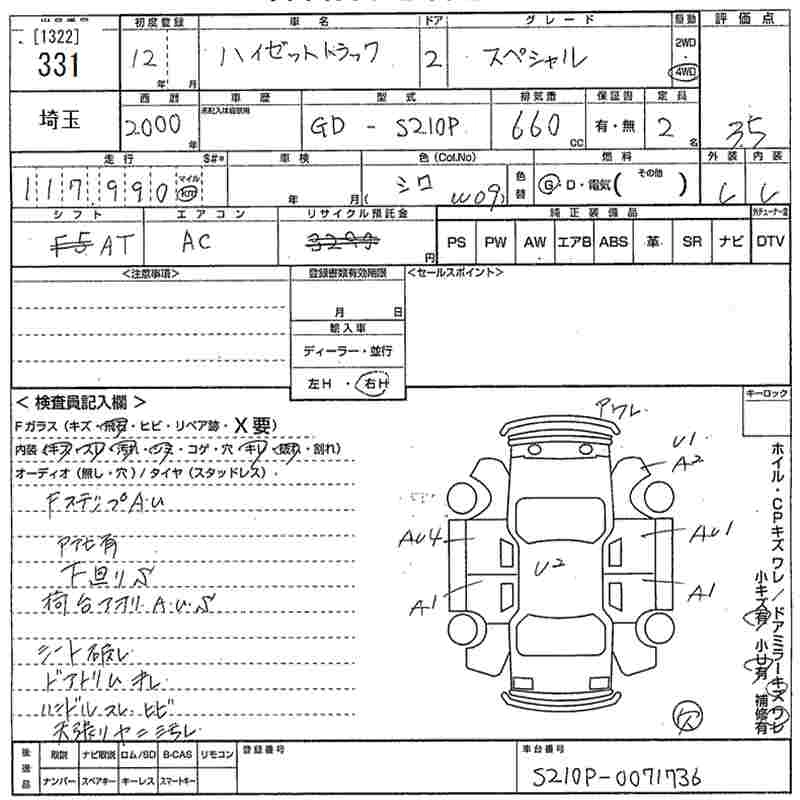 [1322]
331
初度登録
車名
ドア
グレード
駆動
評価点
12
年
月
ハイゼットトラック
2
スペシャル
2WD
4WD
埼玉
西暦
車歴
型式
排気量
保証書
定員
2000
年
GD - S210P
660
CC
有・無
2
名
3.5
走行
S#*
車検
色 (Col.No)
色替
燃料
その他
外装
内装
117990
マイル
km
年
月
シロ
W09
G・D・電気( )
シフト
エアコン
リサイクル預託金
純正装備品
F5 AT
AC
円
PS
PW
AW
エアB
ABS
革
SR
ナビ
DTV
<注意事項>
登録書類有効期限
<セールスポイント>
月
日
輸入車
ディーラー・並行
左H・右H
<検査員記入欄>
キーロック
Fガラス(キズ・飛石・ヒビ・リペア跡・X要)
内装(キズ・スリ・汚れ・シミ・コゲ・穴・キレ・破れ・割れ)
オーディオ(無し・穴)/タイヤ(スタッドレス)・
FステップA.U
下回りS
荷台アオリA.U.S
シート破レ
ハンドルスレ ヒビ
天張リヤニ汚レ
ワレ
U1
A2
AU4
AU1
U2
A1
A1
欠
ホイル・CPキズワレ/ドアミラーキズワレ
小キズ有 小U有 補修有
後送品
取説
ナビ取説
ロム/SD
B-CAS
リモコン
ナンバー
スペアキー
キーレス
スマートキー
登録番号
車台番号
S210P-0071736